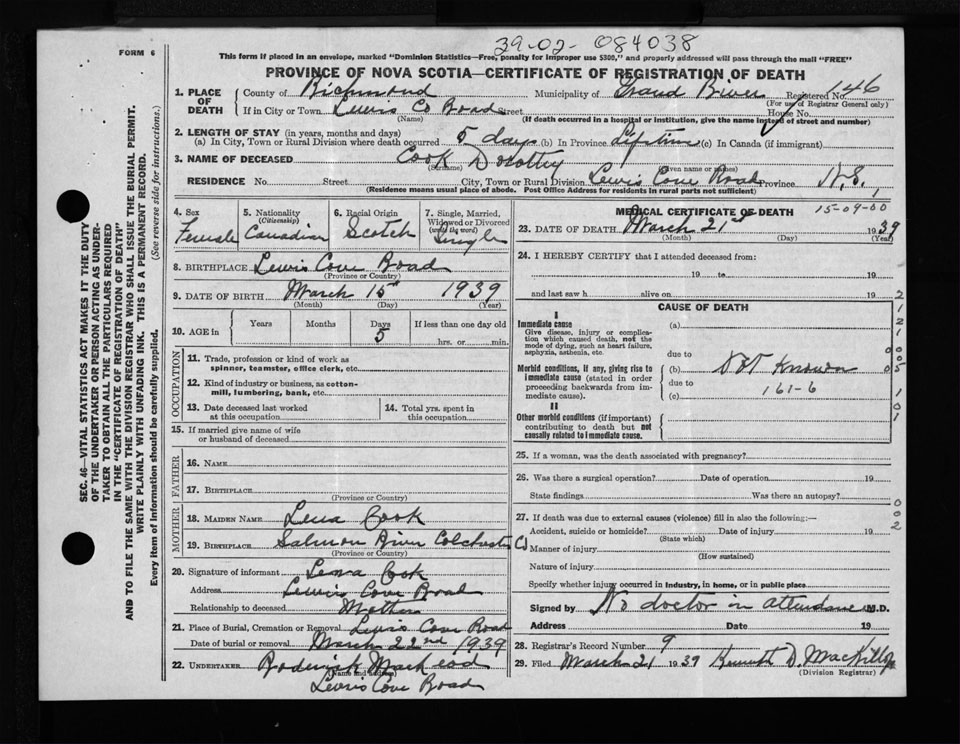 39-02- 084038
FORM 6
This form if placed in an envelope, marked "Dominion Statistics—Free, penalty for improper use $300," and properly addressed will pass through the mail "FREE"
PROVINCE OF NOVA SCOTIA—CERTIFICATE OF REGISTRATION OF DEATH
1. PLACE OF DEATH
County of Richmond Municipality of Grand River Registered No. 46
(For use of Registrar General only)
If in City or Town Lewis Co Road Street House No.
(Name) (If death occurred in a hospital or institution, give the name instead of street and number)
2. LENGTH OF STAY (in years, months and days)
(a) In City, Town or Rural Division where death occurred 5 days (b) In Province Lifetime (c) In Canada (if immigrant)
3. NAME OF DECEASED Cook Dorothy
(Surname) (Given name or names)
RESIDENCE No. Street City, Town or Rural Division Lewis Cove Road Province N.S.
(Residence means usual place of abode. Post Office Address for residents in rural parts not sufficient)
4. Sex
Female
5. Nationality
(Citizenship)
Canadian
6. Racial Origin
Scotch
7. Single, Married,
Widowed or Divorced
(write the word)
Single
8. BIRTHPLACE Lewis Cove Road
(Province or Country)
9. DATE OF BIRTH March 15th 1939
(Month) (Day) (Year)
10. AGE in
Years Months Days If less than one day old
5 hrs. or min.
OCCUPATION
11. Trade, profession or kind of work as
spinner, teamster, office clerk, etc.
12. Kind of industry or business, as cotton-
mill, lumbering, bank, etc.
13. Date deceased last worked
at this occupation
14. Total yrs. spent in
this occupation
15. If married give name of wife
or husband of deceased
FATHER
16. NAME
17. BIRTHPLACE
(Province or Country)
MOTHER
18. MAIDEN NAME Lena Cook
19. BIRTHPLACE Salmon River Colchester Co
(Province or Country)
20. Signature of informant Lena Cook
Address Lewis Cove Road
Relationship to deceased Mother
21. Place of Burial, Cremation or Removal Lewis Cove Road
Date of burial or removal March 22nd 1939
22. UNDERTAKER Roderick MacLeod
(Name and address)
Lewis Cove Road
MEDICAL CERTIFICATE OF DEATH 15-09-00
23. DATE OF DEATH March 21st 1939
(Month) (Day) (Year)
24. I HEREBY CERTIFY that I attended deceased from:
19 to 19
and last saw h alive on 19
CAUSE OF DEATH
I
Immediate cause
Give disease, injury or complica-
tion which caused death, not the
mode of dying, such as heart failure,
asphyxia, asthenia, etc.
(a)
due to
Morbid conditions, if any, giving rise to
immediate cause (stated in order
proceeding backwards from im-
mediate cause).
(b) Not Known
due to
(c) 161-6
II
Other morbid conditions (if important)
contributing to death but not
causally related to immediate cause.
25. If a woman, was the death associated with pregnancy?
26. Was there a surgical operation? Date of operation 19
State findings Was there an autopsy?
27. If death was due to external causes (violence) fill in also the following:—
Accident, suicide or homicide? Date of injury 19
(State which)
Manner of injury
(How sustained)
Nature of injury
Specify whether injury occurred in industry, in home, or in public place
Signed by No doctor in attendance M.D.
Address Date 19
28. Registrar's Record Number 9
29. Filed March 21 1939 Kenneth D. MacKillop
(Division Registrar)
SEC. 46—VITAL STATISTICS ACT MAKES IT THE DUTY
OF THE UNDERTAKER OR PERSON ACTING AS UNDER-
TAKER TO OBTAIN ALL THE PARTICULARS REQUIRED
IN THE "CERTIFICATE OF REGISTRATION OF DEATH"
AND TO FILE THE SAME WITH THE DIVISION REGISTRAR WHO SHALL ISSUE THE BURIAL PERMIT.
WRITE PLAINLY WITH UNFADING INK. THIS IS A PERMANENT RECORD.
Every item of information should be carefully supplied. (See reverse side for instructions.)
002